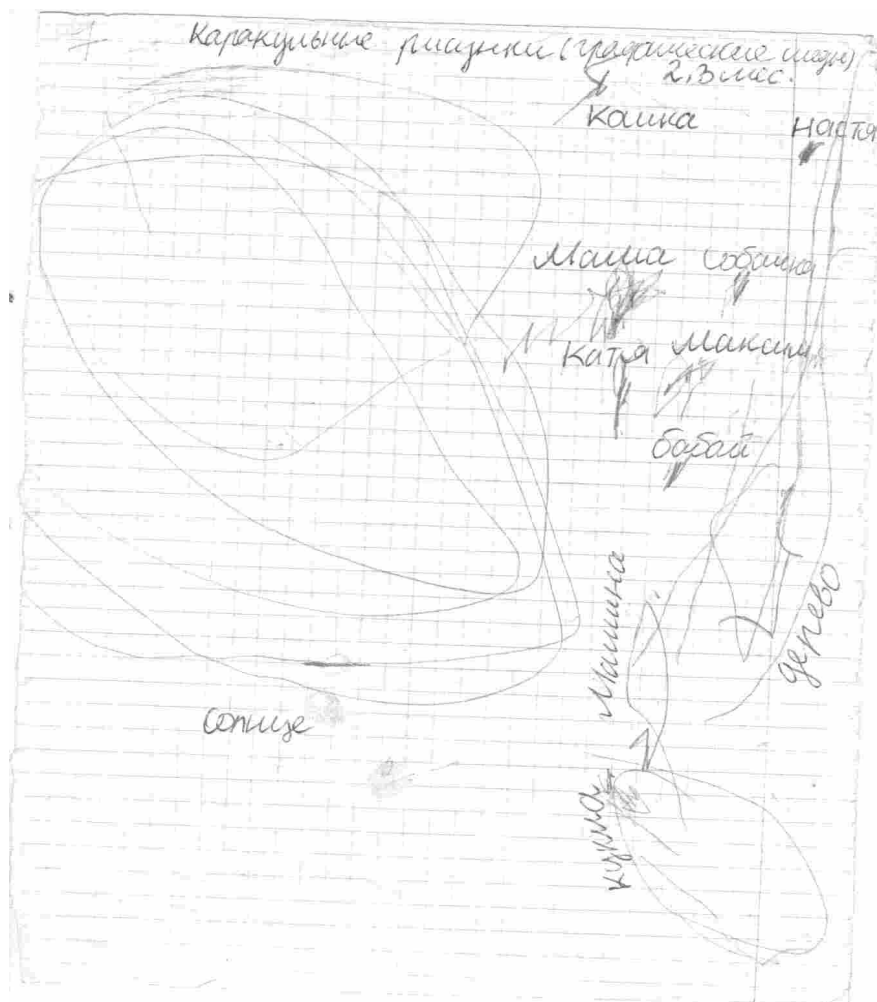 1
Каракульные рисунки (графические следы)
2,3 мес.
Кашка
Настя
Маша
Собачка
Катя
Максим
бабай
Машина
дерево
Солнце